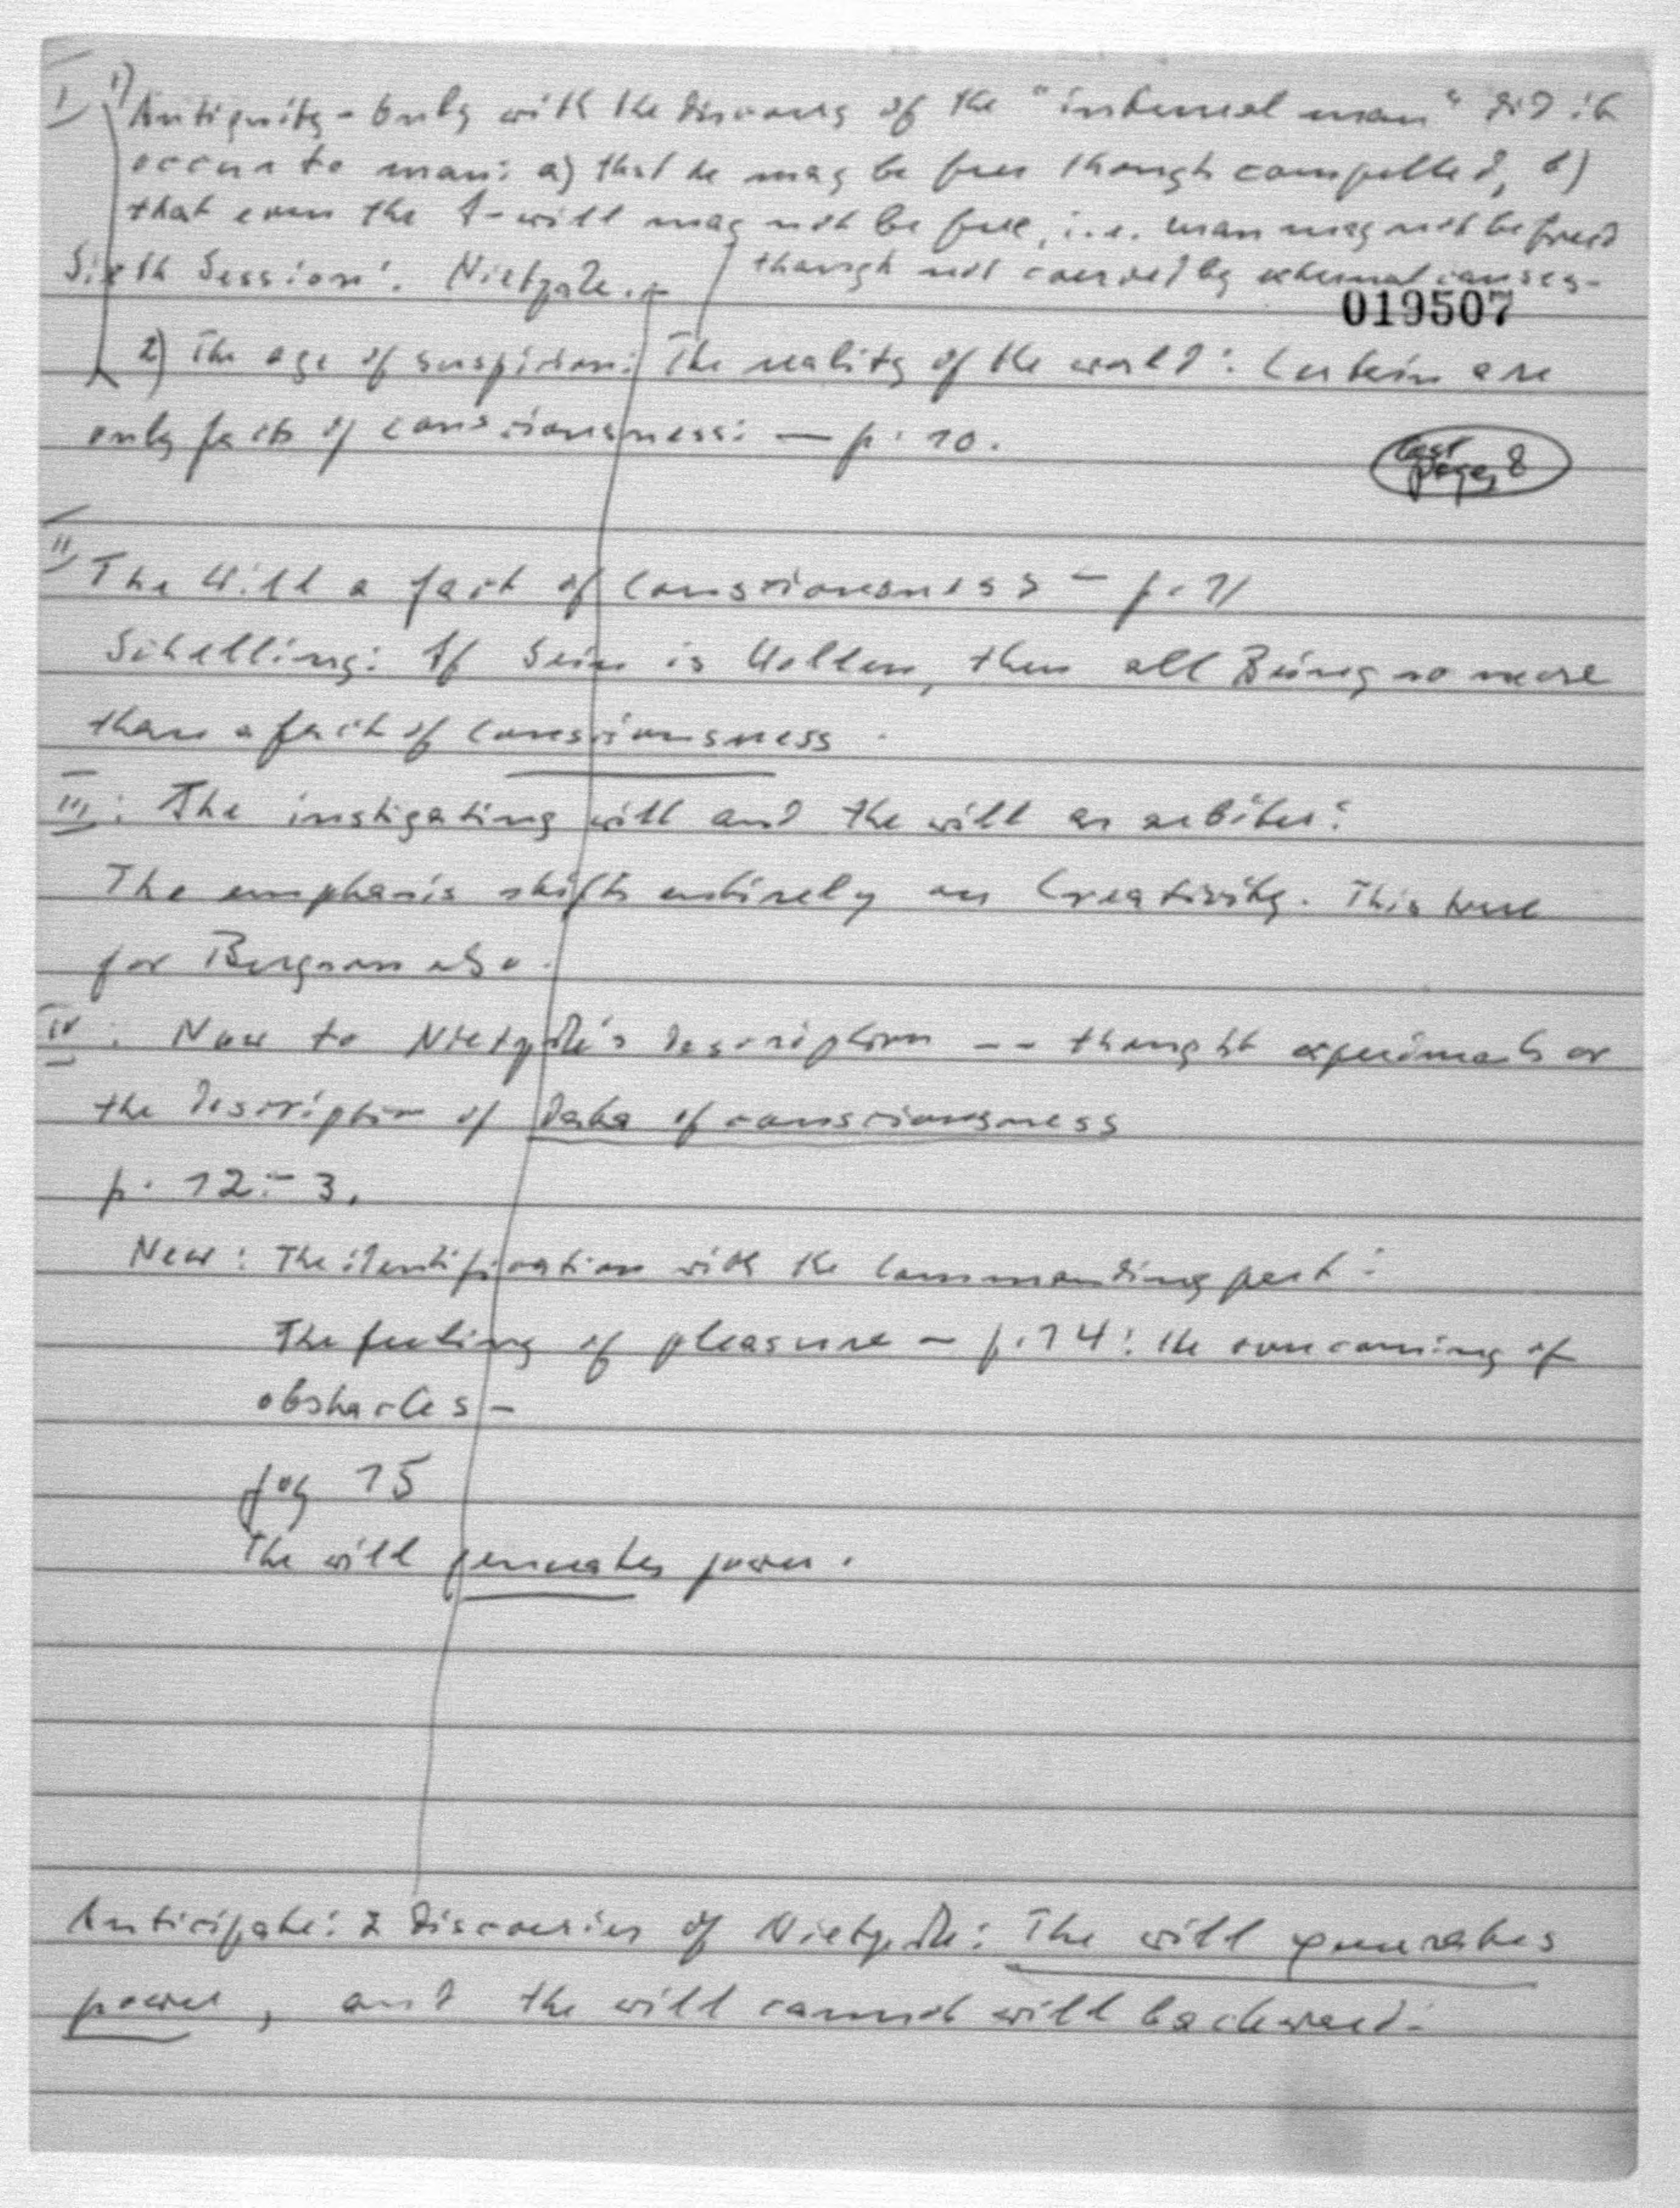 I 1) Antiquity - Only with the discovery of the "internal man" did it
occur to man: a) that he may be free though compelled, b)
that even the I-will may not be free, i.e. man may not be freed
though not coerced by external causes-
Sixth Session: Nietzsche.
019507
2) The age of suspicion: The reality of the world: Certain are
only facts of consciousness: — p. 10.
last page 8
II The Will a fact of consciousness - p. 11
Schelling: If Sein is Wollen, then all Being no more
than a fact of consciousness.
III: The instigating will and the will as arbiter:
The emphasis shifts entirely on Creativity. This true
for Bergson also.
IV. Now to Nietzsche's description -- thought experiments or
the description of data of consciousness
p. 12-3.
New: The identification with the commanding part:
The feeling of pleasure - p. 14: the overcoming of
obstacles -
15
The will generates power.
Anticipate: 2 discoveries of Nietzsche: The will generates
power, and the will cannot will backward.